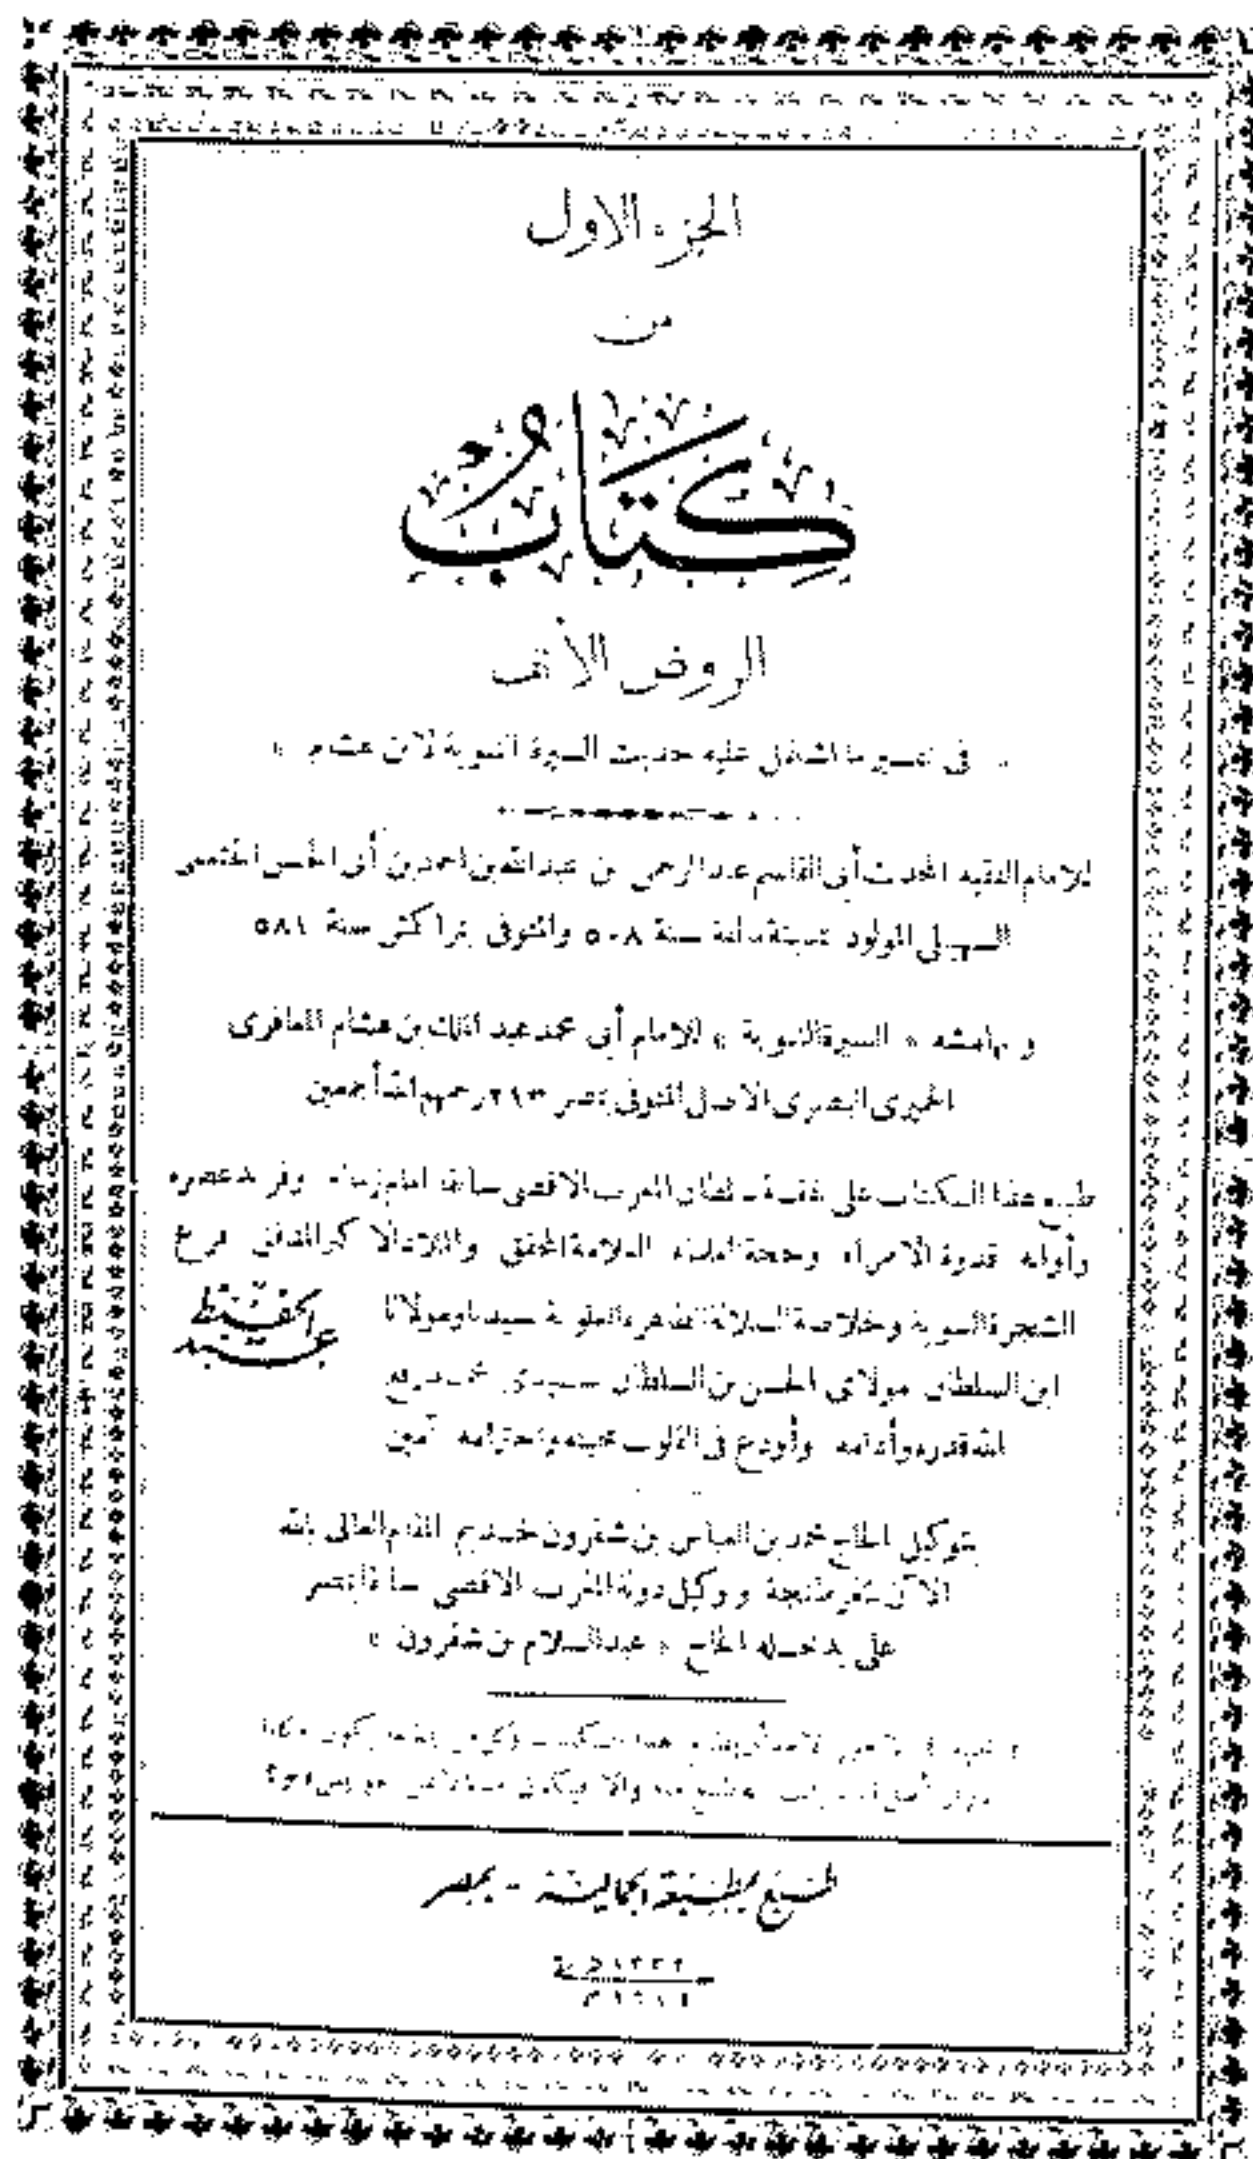 الجزء الاول
من
كتاب
الروض الأنف
في تفسير ما اشتمل عليه حديث السيرة النبوية لابن هشام »
للامام الفقيه المحدث أبي القاسم عبد الرحمن بن عبد الله بن احمد بن أبي الحسن الخثعمي
السهيلي المولود بمدينة مالقة سنة ٥٠٨ والمتوفى بمراكش سنة ٥٨١
و بهامشه « السيرة النبوية » للامام أبي محمد عبد الملك بن هشام المعافرى
الحميرى البصرى الاصل المتوفى بمصر ٢١٣ رحمهم الله أجمعين
طبع هذا الكتاب على نفقة سلطان المغرب الاقصى سابقا امام زمانه وفريد عصره
وأوانه قدوة الامراء وحجة العلماء العلامة المحقق والملاذ الاكبر المدقق فرع
الشجرة النبوية وخلاصة السلالة الطاهرة العلوية سيدنا ومولانا
عبد الحفيظ
ابن السلطان مولاى الحسن بن السلطان سيدى محمد رفع
الله قدره وأدامه وأودع فى القلوب محبته واحترامه آمين
بتوكيل الحاج محمد بن العباس بن شقرون خديم المقام العالى بالله
الآن بثغر طنجة ووكيل دولة المغرب الاقصى سابقا بمصر
على يد نجله الحاج « عبد السلام بن شقرون »
طبع بالمطبعة الجمالية - بمصر
سنة ١٣٣٢ ه
١٩١٤ م